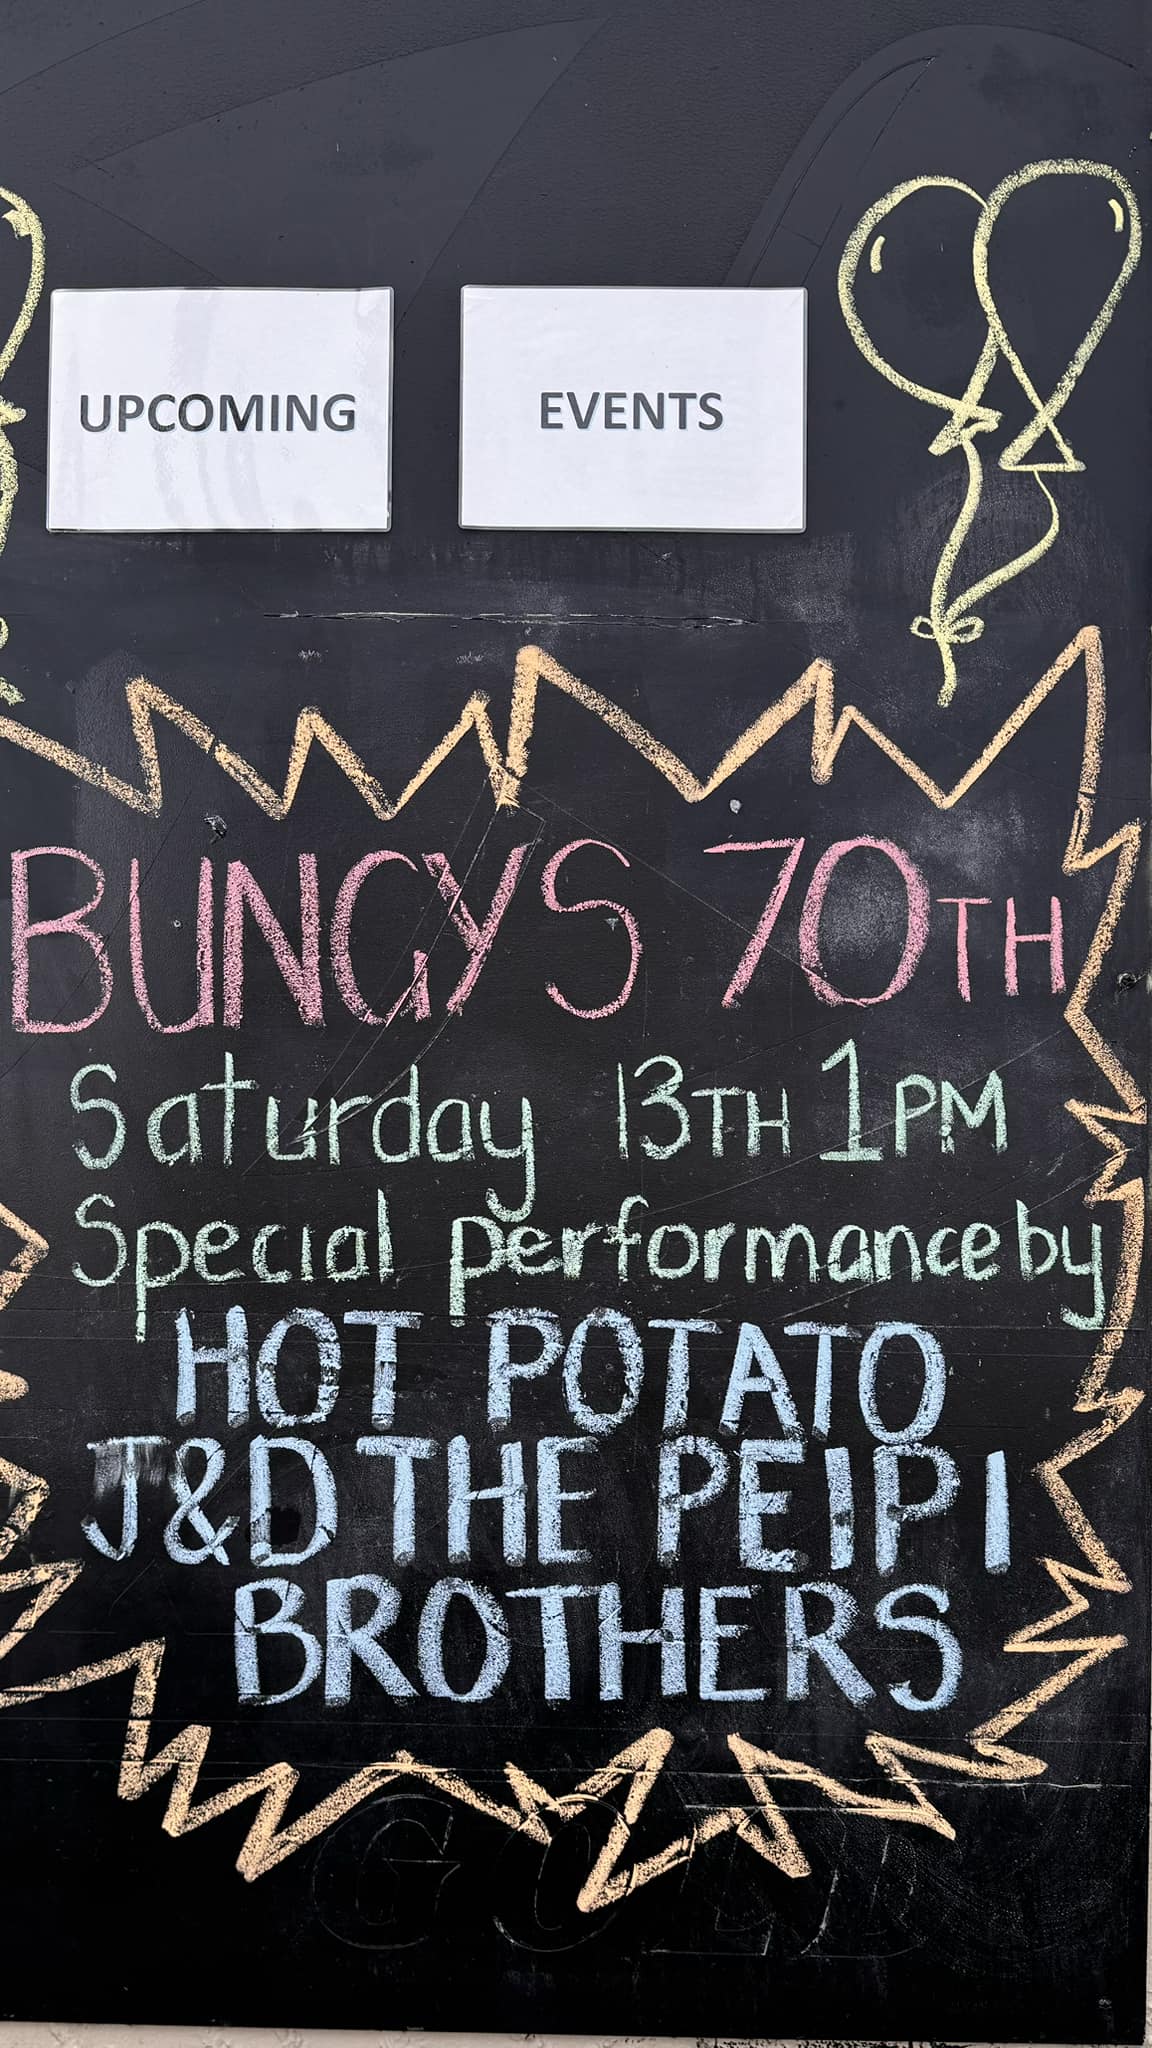 UPCOMING EVENTS
BUNGYS 70TH
Saturday 13TH 1PM
Special performance by
HOT POTATO
J&D THE PEIPI
BROTHERS
GOLD